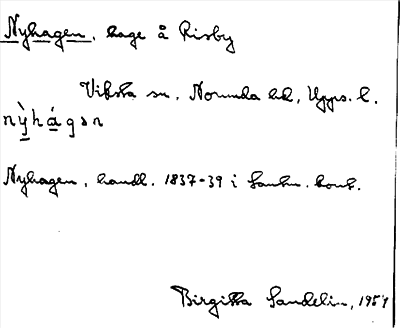 Nyhagen, hage å Risby
Viksta sn, Norunda hd, Upps. l.
nỳhágən
Nyhagen, handl. 1837-39 i Lantm. kont.
Birgitta Sandelin, 1951